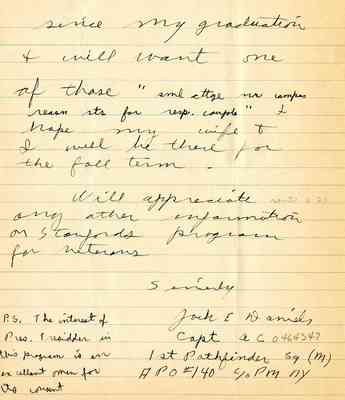 since my graduation
& will want one
of those " sml cttge nr campus
reasn rts for resp. couple" I
hope my wife &
I will be there for
the fall term.
Will appreciate
any other information
on Stanfords program
for veterans
Sincerely
Jack E Daniels
Capt AC 0464347
1st Pathfinder Sq (M)
APO #140 c/o PM NY
P.S. The interest of
Pres. Tresidder in
this program is an
excellent omen for
the